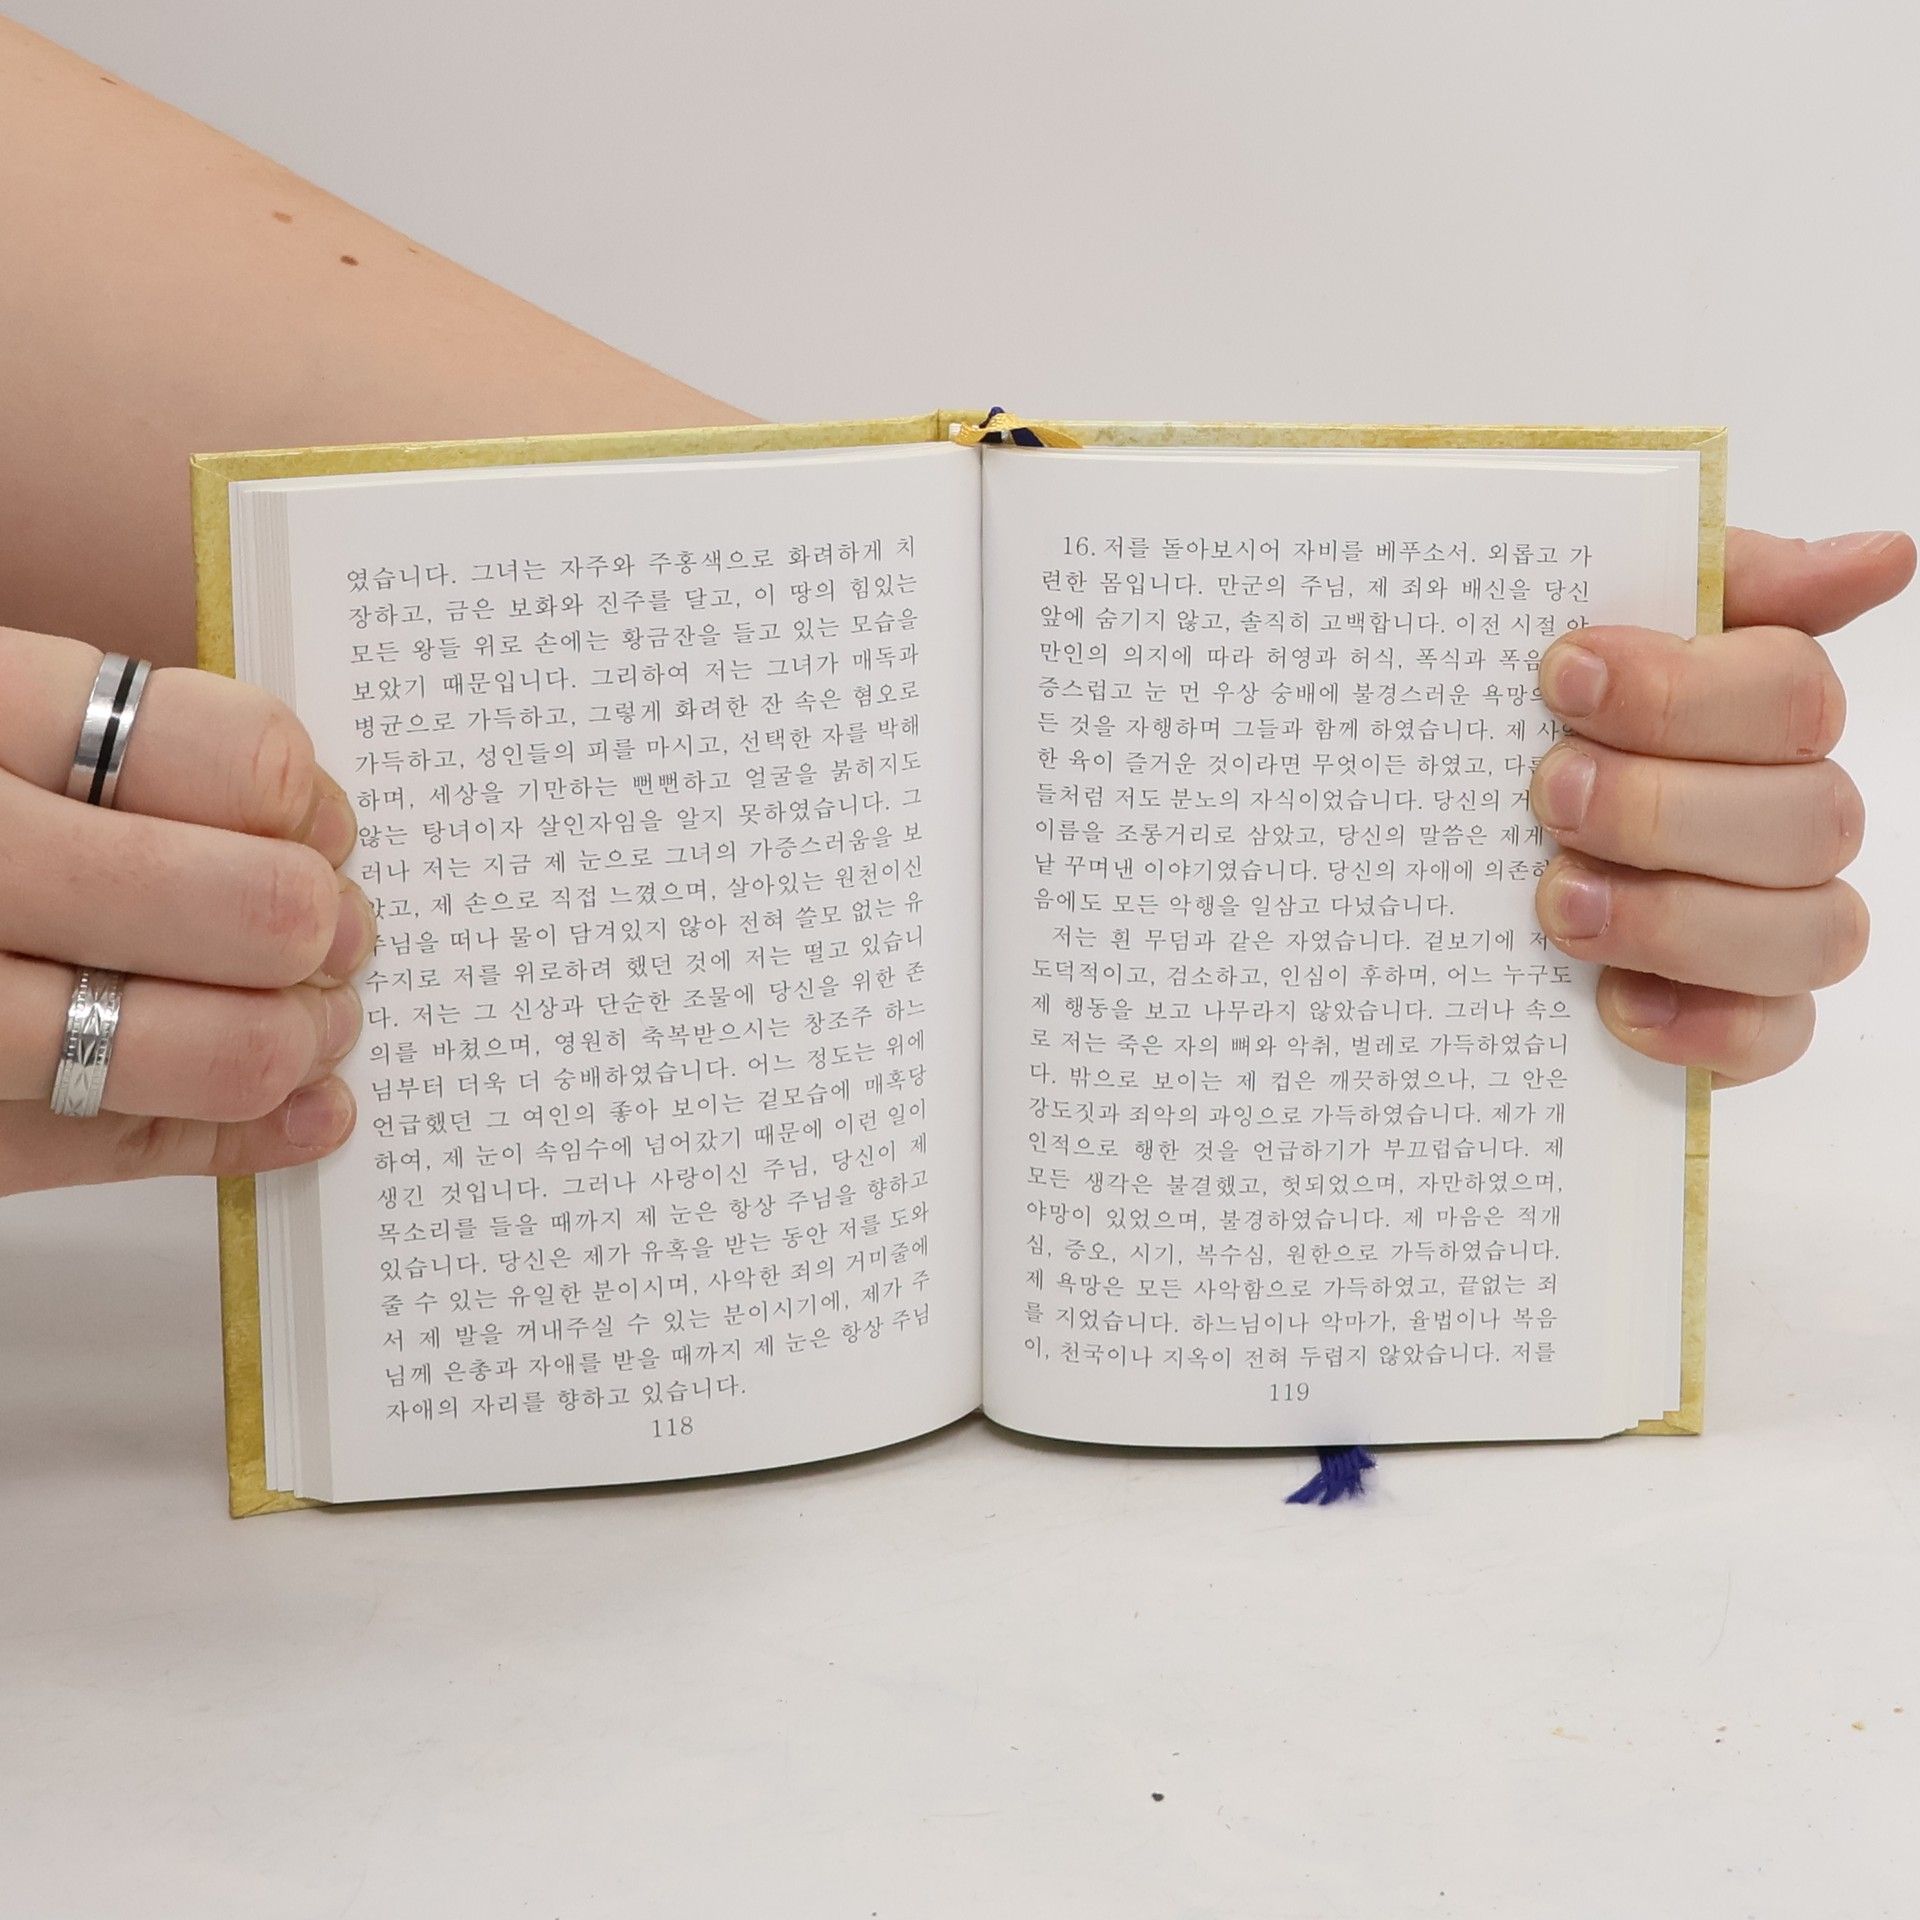 였습니다. 그녀는 자주와 주홍색으로 화려하게 치
장하고, 금은 보화와 진주를 달고, 이 땅의 힘있는
모든 왕들 위로 손에는 황금잔을 들고 있는 모습을
보았기 때문입니다. 그리하여 저는 그녀가 매독과
병균으로 가득하고, 그렇게 화려한 잔 속은 혐오로
가득하고, 성인들의 피를 마시고, 선택한 자를 박해
하며, 세상을 기만하는 뻔뻔하고 얼굴을 붉히지도
않는 탕녀이자 살인자임을 알지 못하였습니다. 그
러나 저는 지금 제 눈으로 그녀의 가증스러움을 보
았고, 제 손으로 직접 느꼈으며, 살아있는 원천이신
주님을 떠나 물이 담겨있지 않아 전혀 쓸모 없는 유
수지로 저를 위로하려 했던 것에 저는 떨고 있습니
다. 저는 그 신상과 단순한 조물에 당신을 위한 존
의를 바쳤으며, 영원히 축복받으시는 창조주 하느
님부터 더욱 더 숭배하였습니다. 어느 정도는 위에
언급했던 그 여인의 좋아 보이는 겉모습에 매혹당
하여, 제 눈이 속임수에 넘어갔기 때문에 이런 일이
생긴 것입니다. 그러나 사랑이신 주님, 당신이 제
목소리를 들을 때까지 제 눈은 항상 주님을 향하고
있습니다. 당신은 제가 유혹을 받는 동안 저를 도와
줄 수 있는 유일한 분이시며, 사악한 죄의 거미줄에
서 제 발을 꺼내주실 수 있는 분이시기에, 제가 주
님께 은총과 자애를 받을 때까지 제 눈은 항상 주님
자애의 자리를 향하고 있습니다.
118
16. 저를 돌아보시어 자비를 베푸소서. 외롭고 가
련한 몸입니다. 만군의 주님, 제 죄와 배신을 당신
앞에 숨기지 않고, 솔직히 고백합니다. 이전 시절
만인의 의지에 따라 허영과 허식, 폭식과
증스럽고 눈 먼 우상 숭배에 불경스러운
든 것을 자행하며 그들과 함께 하였습니다. 제
한 육이 즐거운 것이라면 무엇이든 하였고,
들처럼 저도 분노의 자식이었습니다. 당신의
이름을 조롱거리로 삼았고, 당신의 말씀은 제게
낱 꾸며낸 이야기였습니다. 당신의 자애에
음에도 모든 악행을 일삼고 다녔습니다.
저는 흰 무덤과 같은 자였습니다. 겉보기에
도덕적이고, 검소하고, 인심이 후하며, 어느 누구도
제 행동을 보고 나무라지 않았습니다. 그러나 속으
로 저는 죽은 자의 뼈와 악취, 벌레로 가득하였습니
다. 밖으로 보이는 제 컵은 깨끗하였으나, 그 안은
강도짓과 죄악의 과잉으로 가득하였습니다. 제가 개
인적으로 행한 것을 언급하기가 부끄럽습니다. 제
모든 생각은 불결했고, 헛되었으며, 자만하였으며,
야망이 있었으며, 불경하였습니다. 제 마음은 적개
심, 증오, 시기, 복수심, 원한으로 가득하였습니다.
제 욕망은 모든 사악함으로 가득하였고, 끝없는 죄
를 지었습니다. 하느님이나 악마가, 율법이나 복음
이, 천국이나 지옥이 전혀 두렵지 않았습니다. 저를
119